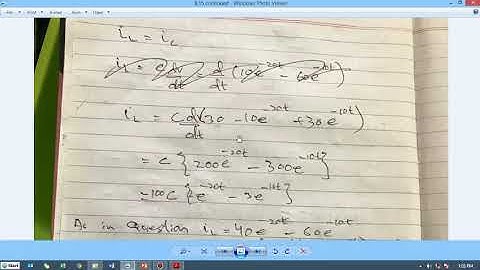 8.15 continued - Windows Photo Viewer
File Print E-mail Burn Open
i_L = i_c
i_L = c dv/dt = d/dt (10e^-20t - 60e^-10t)
i_L = c d/dt (30 - 10e^-20t + 30e^-10t)
= c { 200e^-20t - 300e^-10t }
= 100c { e^-20t - 3e^-10t }
As in question i_L = 40e^-20t - 60e^-10t